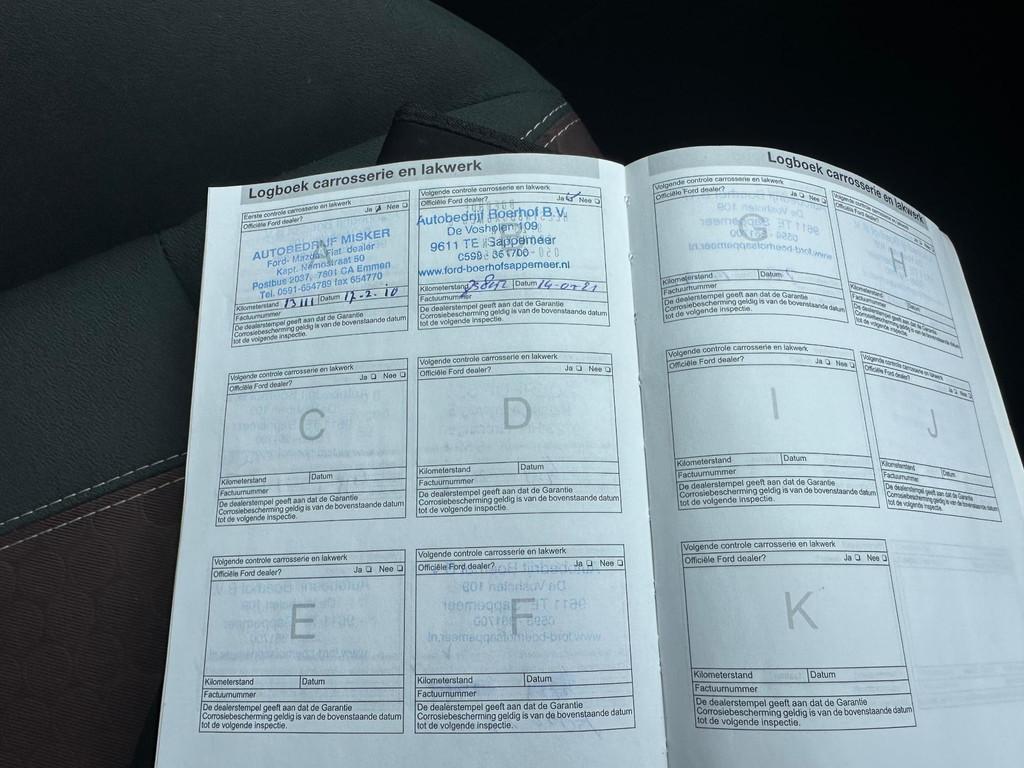 Logboek carrosserie en lakwerk
Eerste controle carrosserie en lakwerk
Officiële Ford dealer? Ja Nee
A
AUTOBEDRIJF MISKER
Ford- Mazda- Fiat dealer
Kapt. Nemostraat 50
Postbus 2037, 7801 CA Emmen
Tel. 0591-654789 fax 654770
Kilometerstand 13111 Datum 17-2-10
Factuurnummer
De dealerstempel geeft aan dat de Garantie
Corrosiebescherming geldig is van bovenstaande datum
tot de volgende inspectie.
Volgende controle carrosserie en lakwerk
Officiële Ford dealer? Ja Nee
Autobedrijf Boerhof B.V.
De Vosholen 109
9611 TE Sappemeer
0598 - 361700
www.ford-boerhofsappemeer.nl
Kilometerstand Datum
Factuurnummer
De dealerstempel geeft aan dat de Garantie
Corrosiebescherming geldig is van bovenstaande datum
tot de volgende inspectie.
Volgende controle carrosserie en lakwerk
Officiële Ford dealer? Ja Nee
C
Kilometerstand Datum
Factuurnummer
De dealerstempel geeft aan dat de Garantie
Corrosiebescherming geldig is van bovenstaande datum
tot de volgende inspectie.
Volgende controle carrosserie en lakwerk
Officiële Ford dealer? Ja Nee
D
Kilometerstand Datum
Factuurnummer
De dealerstempel geeft aan dat de Garantie
Corrosiebescherming geldig is van bovenstaande datum
tot de volgende inspectie.
Volgende controle carrosserie en lakwerk
Officiële Ford dealer? Ja Nee
E
Kilometerstand Datum
Factuurnummer
De dealerstempel geeft aan dat de Garantie
Corrosiebescherming geldig is van bovenstaande datum
tot de volgende inspectie.
Volgende controle carrosserie en lakwerk
Officiële Ford dealer? Ja Nee
F
Kilometerstand Datum
Factuurnummer
De dealerstempel geeft aan dat de Garantie
Corrosiebescherming geldig is van bovenstaande datum
tot de volgende inspectie.
Logboek carrosserie en lakwerk
Volgende controle carrosserie en lakwerk
Officiële Ford dealer? Ja Nee
G
Kilometerstand Datum
Factuurnummer
De dealerstempel geeft aan dat de Garantie
Corrosiebescherming geldig is van bovenstaande datum
tot de volgende inspectie.
Volgende controle carrosserie en lakwerk
Officiële Ford dealer?
H
Kilometerstand
Factuurnummer
De dealerstempel geeft aan dat de Garantie
Corrosiebescherming geldig is van bovenstaande datum
tot de volgende inspectie.
Volgende controle carrosserie en lakwerk
Officiële Ford dealer? Ja Nee
I
Kilometerstand Datum
Factuurnummer
De dealerstempel geeft aan dat de Garantie
Corrosiebescherming geldig is van bovenstaande datum
tot de volgende inspectie.
Volgende controle carrosserie en lakwerk
Officiële Ford dealer? Ja Nee
J
Kilometerstand Datum
Factuurnummer
De dealerstempel geeft aan dat de Garantie
Corrosiebescherming geldig is van bovenstaande datum
tot de volgende inspectie.
Volgende controle carrosserie en lakwerk
Officiële Ford dealer? Ja Nee
K
Kilometerstand Datum
Factuurnummer
De dealerstempel geeft aan dat de Garantie
Corrosiebescherming geldig is van bovenstaande datum
tot de volgende inspectie.